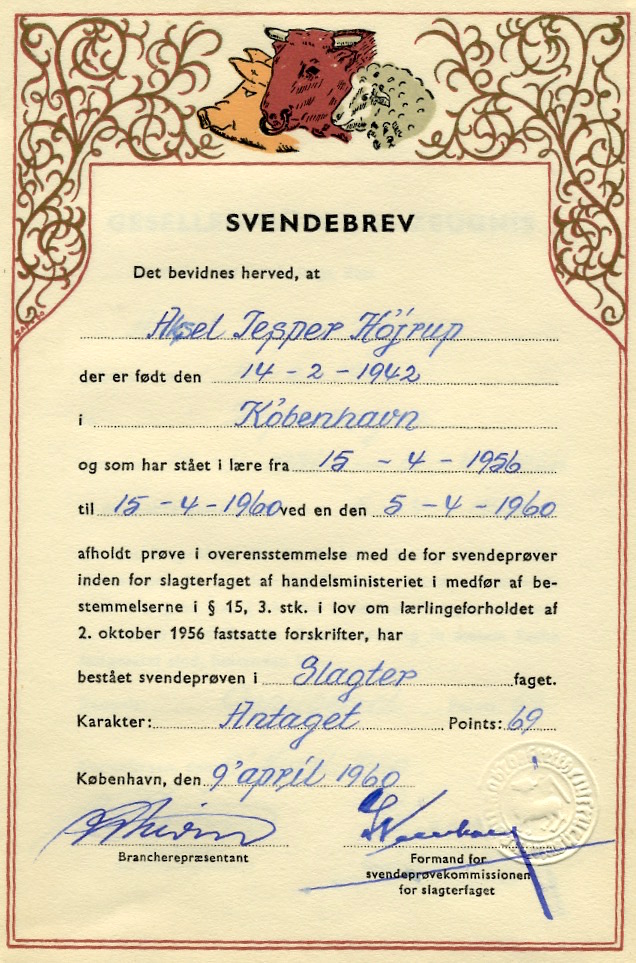 SVENDEBREV
Det bevidnes herved, at
Aksel Jesper Höjrup
der er født den 14 - 2 - 1942
i København
og som har stået i lære fra 15 - 4 - 1956
til 15 - 4 - 1960 ved en den 5 - 4 - 1960
afholdt prøve i overensstemmelse med de for svendeprøver
inden for slagterfaget af handelsministeriet i medfør af be-
stemmelserne i § 15, 3. stk. i lov om lærlingeforholdet af
2. oktober 1956 fastsatte forskrifter, har
bestået svendeprøven i Slagter faget.
Karakter: Antaget Points: 69
København, den 9' april 1960
Brancherepræsentant
Formand for
svendeprøvekommissionen
for slagterfaget